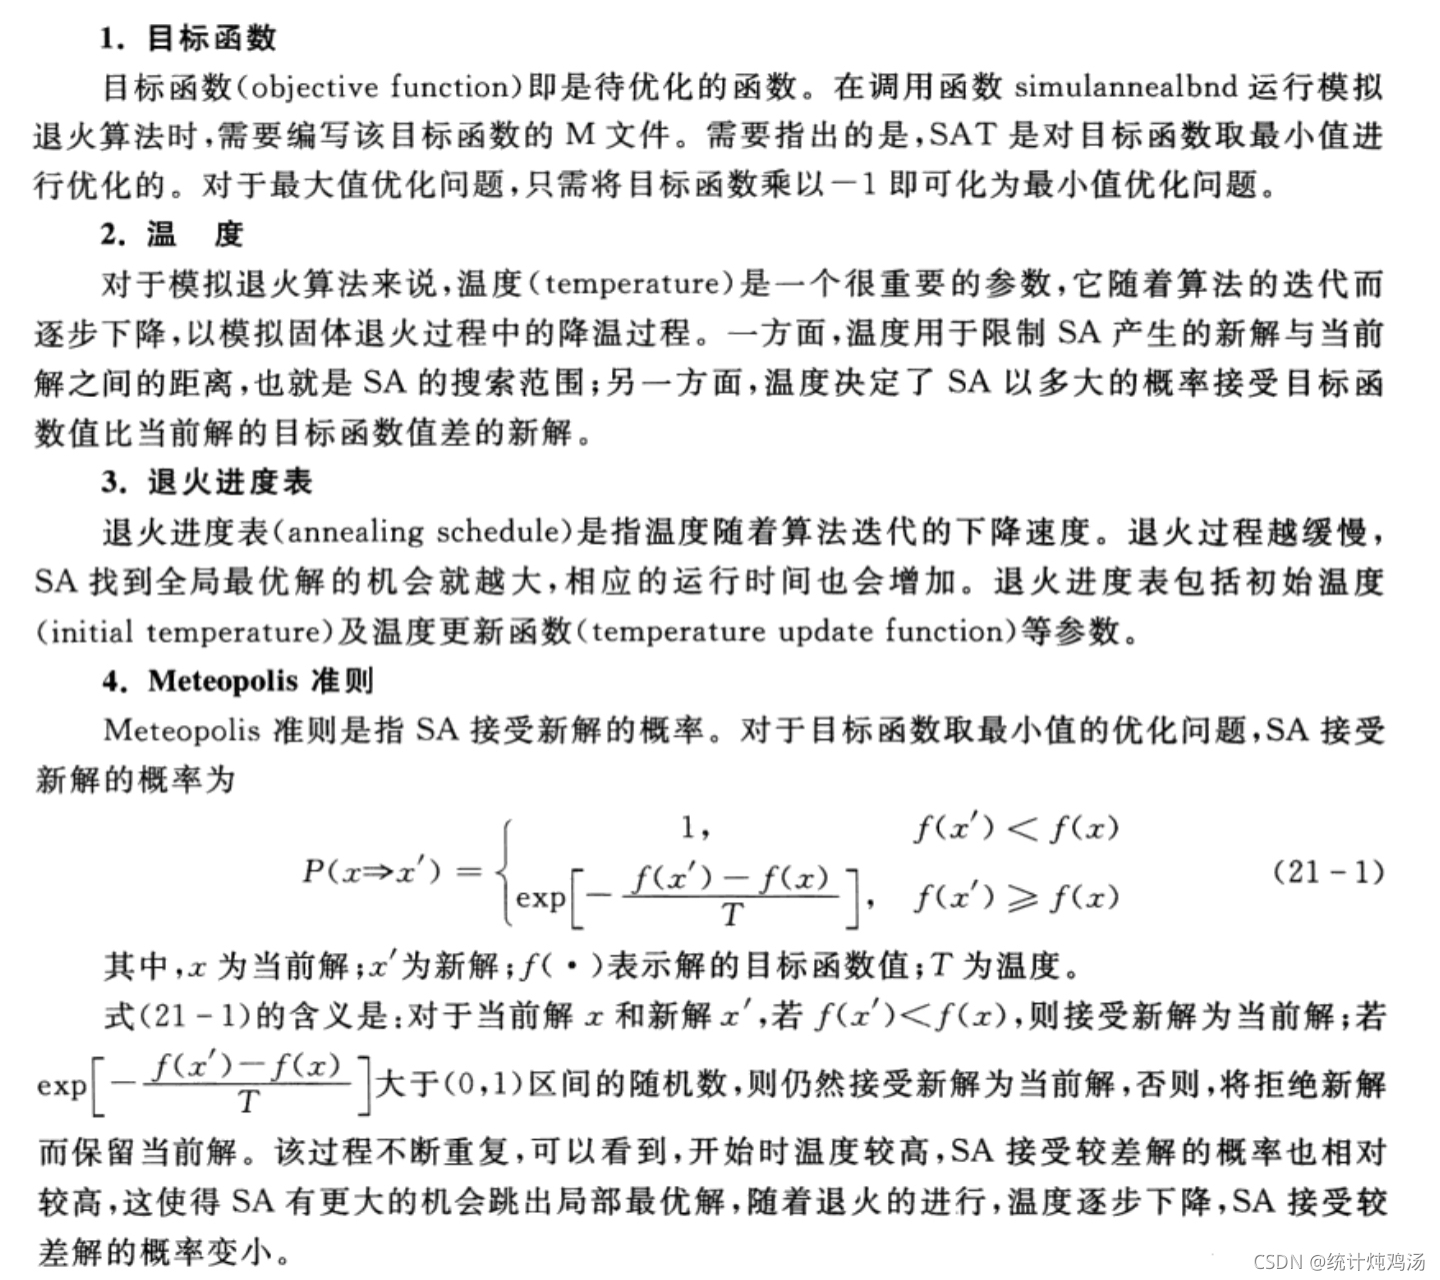 1. 目标函数
目标函数(objective function)即是待优化的函数。在调用函数 simulannealbnd 运行模拟
退火算法时,需要编写该目标函数的 M 文件。需要指出的是,SAT 是对目标函数取最小值进
行优化的。对于最大值优化问题,只需将目标函数乘以－1 即可化为最小值优化问题。
2. 温 度
对于模拟退火算法来说,温度(temperature)是一个很重要的参数,它随着算法的迭代而
逐步下降,以模拟固体退火过程中的降温过程。一方面,温度用于限制 SA 产生的新解与当前
解之间的距离,也就是 SA 的搜索范围;另一方面,温度决定了 SA 以多大的概率接受目标函
数值比当前解的目标函数值差的新解。
3. 退火进度表
退火进度表(annealing schedule)是指温度随着算法迭代的下降速度。退火过程越缓慢,
SA 找到全局最优解的机会就越大,相应的运行时间也会增加。退火进度表包括初始温度
(initial temperature)及温度更新函数(temperature update function)等参数。
4. Meteopolis 准则
Meteopolis 准则是指 SA 接受新解的概率。对于目标函数取最小值的优化问题,SA 接受
新解的概率为
P(x⇒x′) = { 1, f(x′) < f(x)
exp[－ (f(x′)－f(x)) / T], f(x′) ⩾ f(x) (21-1)
其中,x 为当前解;x′为新解;f(·)表示解的目标函数值;T 为温度。
式(21-1)的含义是:对于当前解 x 和新解 x′,若 f(x′)<f(x),则接受新解为当前解;若
exp[－ (f(x′)－f(x)) / T]大于(0,1)区间的随机数,则仍然接受新解为当前解,否则,将拒绝新解
而保留当前解。该过程不断重复,可以看到,开始时温度较高,SA 接受较差解的概率也相对
较高,这使得 SA 有更大的机会跳出局部最优解,随着退火的进行,温度逐步下降,SA 接受较
差解的概率变小。
CSDN @统计炖鸡汤